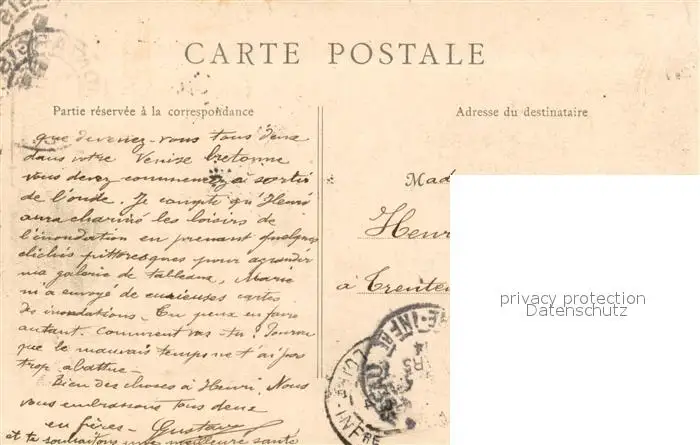 CARTE POSTALE
Partie réservée à la correspondance
Adresse du destinataire
que devenez-vous tous deux
dans votre Venise bretonne
vous devez commencer à sortir
de l'onde. Je compte qu'Henri
aura charmé les loisirs de
l'inondation en prenant quelques
clichés pittoresques pour agrandir
ma galerie de tableaux, Marie
m'a envoyé de curieuses cartes
des inondations. Tu peux en faire
autant. Comment vas-tu? Pourvu
que le mauvais temps ne t'ai pas
trop abattue -
Bien des choses à Henri. Nous
vous embrassons tous deux
en frères - Gustave
et te souhaitons une meilleure santé
Mad
Henri
à Trente
privacy protection
Datenschutz
LOIRE-INFRE